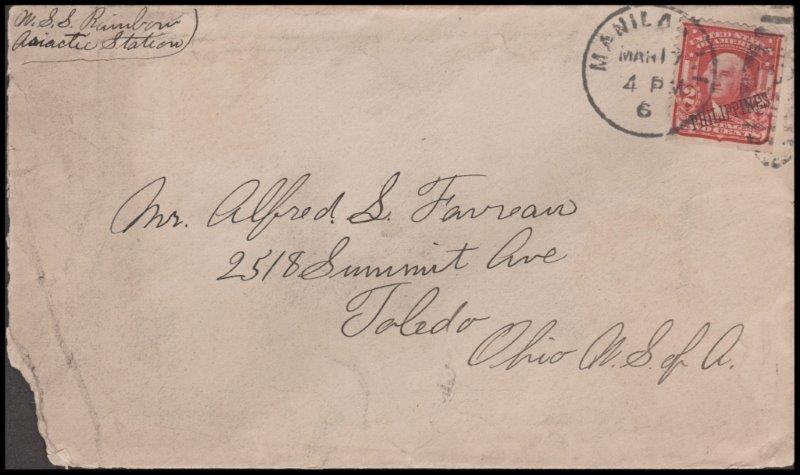 U.S.S. Rainbow
Asiactic Station
MANILA
MAR 17
4 PM
6
UNITED STATES
OF AMERICA
2
PHILIPPINES
TWO CENTS
Mr. Alfred. L. Favreau
2518 Summit Ave
Toledo
Ohio U.S. of A.